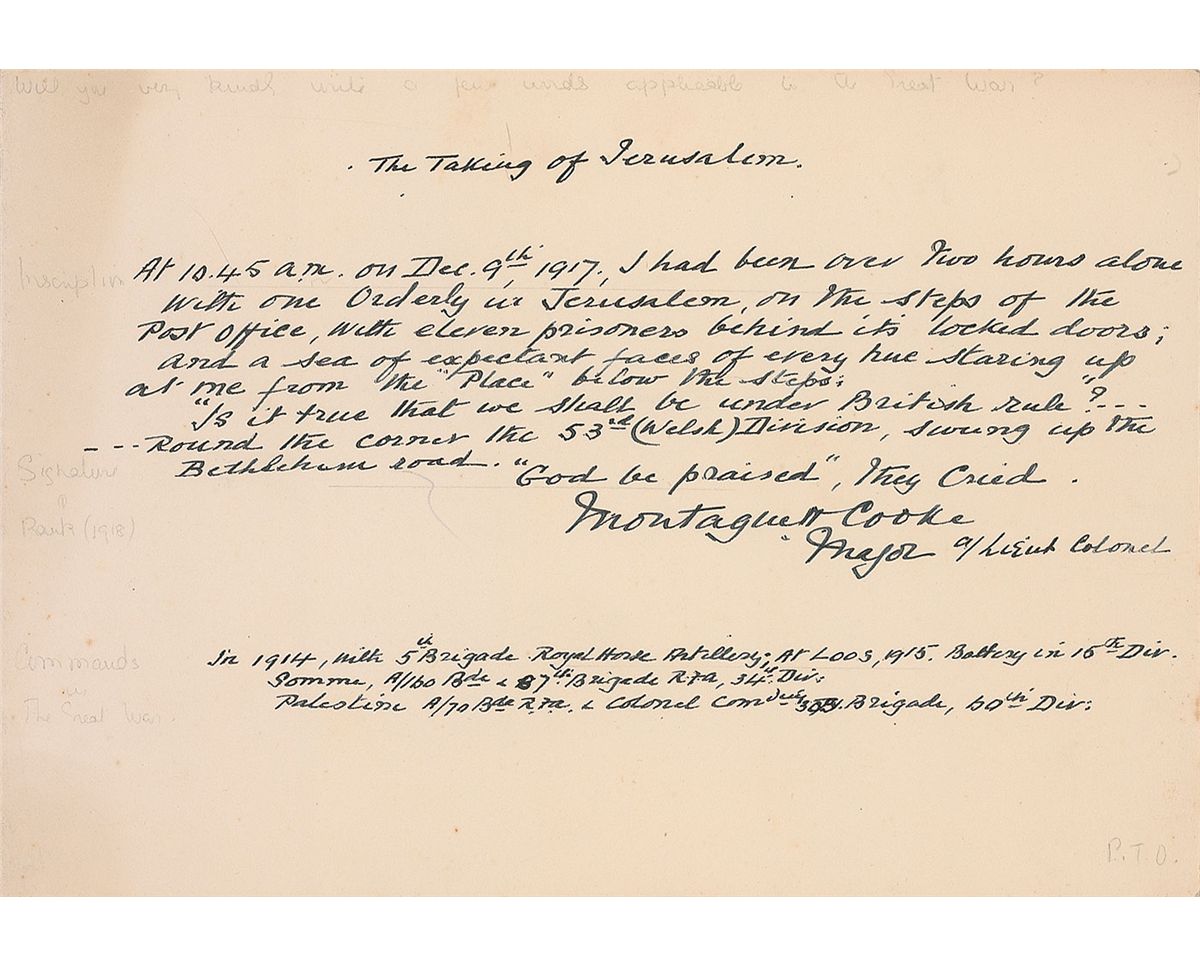 Will you very kindly write a few words applicable to the Great War?
The Taking of Jerusalem.
Inscription
At 10.45 a.m. on Dec. 9th 1917, I had been over two hours alone
with one Orderly in Jerusalem, on the steps of the
Post Office, with eleven prisoners behind its locked doors;
and a sea of expectant faces of every hue staring up
at me from the "Place" below the steps;
"Is it true that we shall be under British rule"? ---
--- Round the corner the 53rd (Welsh) Division, swung up the
Bethlehem road. "God be praised", they cried.
Signature
Rank (1918)
Montague Cooke
Major a/Lieut Colonel
Commands
in
The Great War.
In 1914, with 5th Brigade Royal Horse Artillery; At Loos, 1915. Battery in 15th Div.
Somme, A/160 Bde & 7th Brigade RFA, 34th Div:
Palestine A/70 Bde R.F.A. & Colonel Comdg Brigade, 60th Div:
P.T.O.